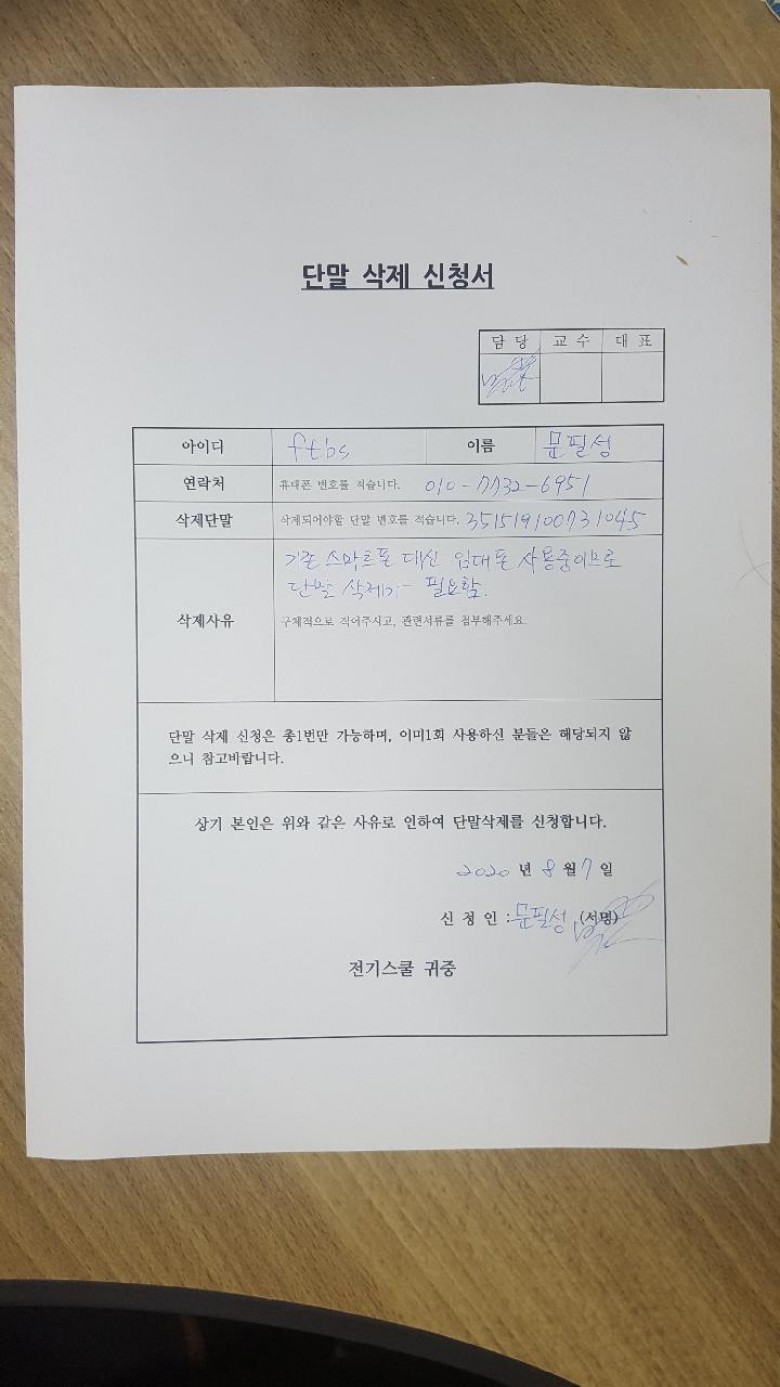 단말 삭제 신청서
담 당 교 수 대 표
아이디 ftbs 이름 문필성
연락처 휴대폰 번호를 적습니다. 010-7732-6951
삭제단말 삭제되어야할 단말 번호를 적습니다. 351519100731045
기존 스마트폰 대신 임대폰 사용중이므로
단말 삭제가 필요함.
삭제사유 구체적으로 적어주시고, 관련서류를 첨부해주세요.
단말 삭제 신청은 총1번만 가능하며, 이미1회 사용하신 분들은 해당되지 않
으니 참고바랍니다.
상기 본인은 위와 같은 사유로 인하여 단말삭제를 신청합니다.
2020 년 8 월 7 일
신 청 인 : 문필성 (서명)
전기스쿨 귀중